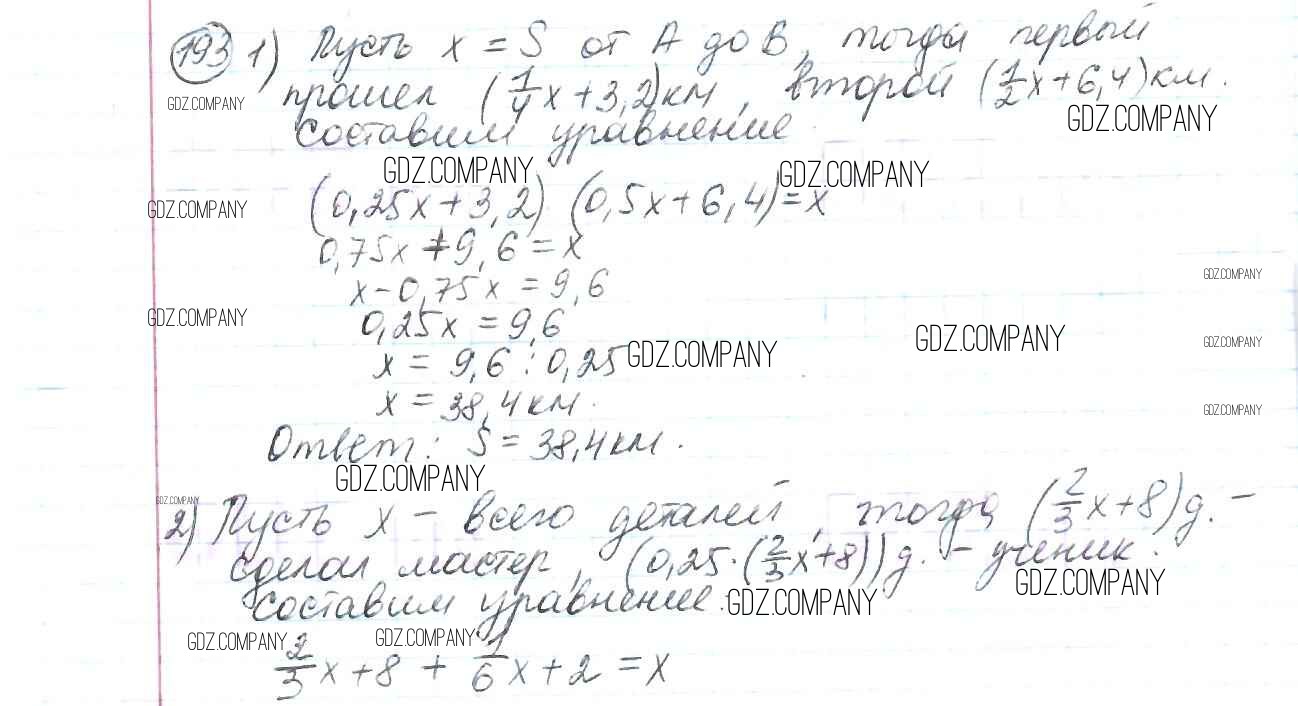 193 1) Пусть x = S от A до B, тогда первый
прошел (1/4x+3,2)км, второй (1/2x+6,4)км.
GDZ.COMPANY
составим уравнение
GDZ.COMPANY
GDZ.COMPANY GDZ.COMPANY
(0,25x+3,2) (0,5x+6,4)=x
GDZ.COMPANY
0,75x+9,6=x
x-0,75x=9,6
GDZ.COMPANY
0,25x=9,6
GDZ.COMPANY
GDZ.COMPANY
GDZ.COMPANY
x=9,6:0,25
GDZ.COMPANY
x=38,4км.
GDZ.COMPANY
Ответ: S=38,4км.
GDZ.COMPANY
GDZ.COMPANY
2) Пусть x – всего деталей, тогда (2/3x+8)д. –
сделал мастер, (0,25·(2/3x+8))д. – ученик.
GDZ.COMPANY
составим уравнение.
GDZ.COMPANY
GDZ.COMPANY GDZ.COMPANY
2/3x+8 + 1/6x+2 =x